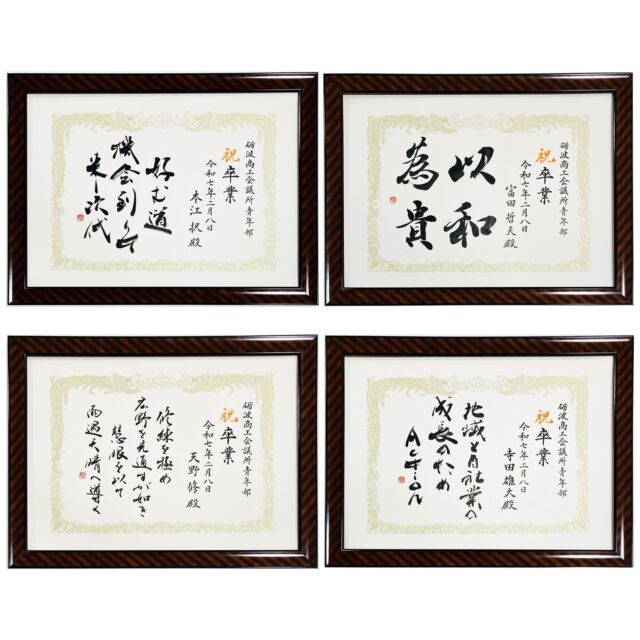 砺波商工会議所青年部
祝 卒業
令和七年二月八日
本江 択 殿
好む道
機会到
次代
砺波商工会議所青年部
祝 卒業
令和七年二月八日
富田哲夫殿
以和
為貴
砺波商工会議所青年部
祝 卒業
令和七年二月八日
天野 修 殿
修練を極め
広野を見通すが如き
慧眼を以て
雨過天晴へ導く
砺波商工会議所青年部
祝 卒業
令和七年二月八日
寺田雄大殿
地域と自社業の
成長のため